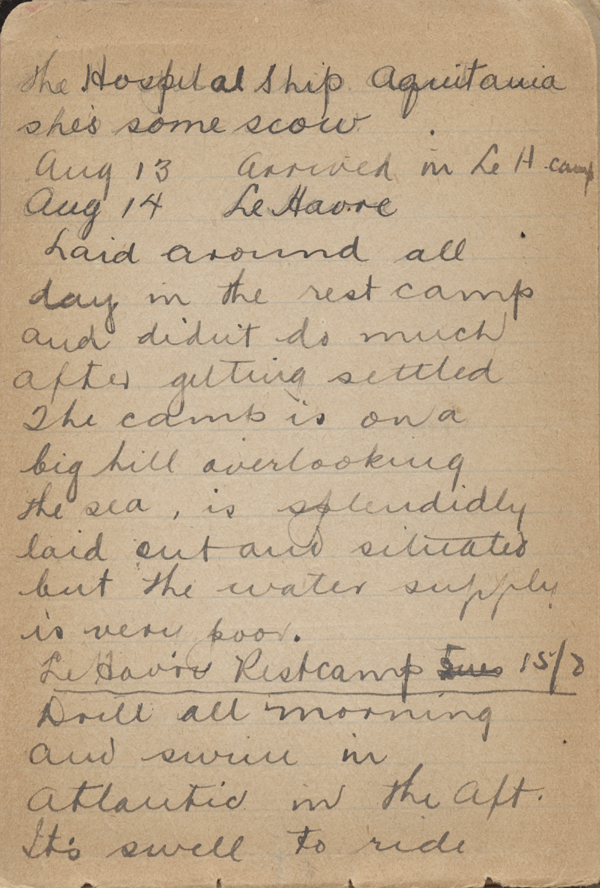 the Hospital Ship Aquitania
she's some scow
Aug 13 Arrived in Le H. camp
Aug 14 Le Havre
Laid around all
day in the rest camp
and didn't do much
after getting settled
The camp is on a
big hill overlooking
the sea, is splendidly
laid out and situated
but the water supply
is very poor.
Le Havre Restcamp 15/8
Drill all morning
and swim in
Atlantic in the Aft.
It's swell to ride